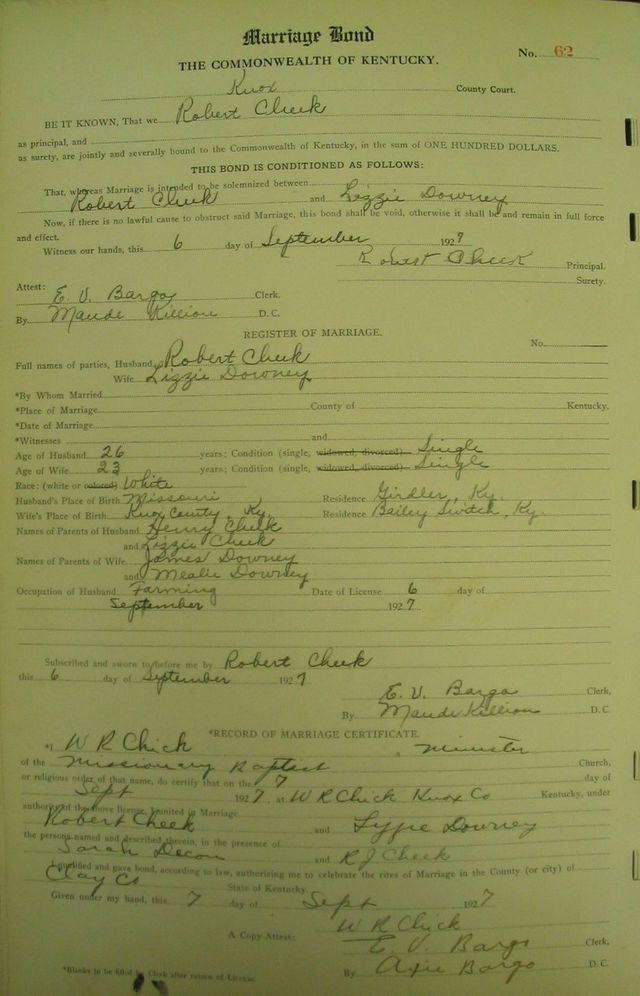 Marriage Bond
THE COMMONWEALTH OF KENTUCKY.
No. 62
Knox County Court.
BE IT KNOWN, That we Robert Cheek
as principal, and
as surety, are jointly and severally bound to the Commonwealth of Kentucky, in the sum of ONE HUNDRED DOLLARS.
THIS BOND IS CONDITIONED AS FOLLOWS:
That, whereas Marriage is intended to be solemnized between
Robert Cheek and Lizzie Downey
Now, if there is no lawful cause to obstruct said Marriage, this bond shall be void, otherwise it shall be and remain in full force
and effect.
Witness our hands, this 6 day of September 1927
Robert Cheek Principal.
Surety.
Attest:
E. V. Bargo Clerk.
By Maude Killion D. C.
REGISTER OF MARRIAGE.
No.
Full names of parties, Husband, Robert Cheek
Wife Lizzie Downey
*By Whom Married
*Place of Marriage County of Kentucky.
*Date of Marriage
*Witnesses and
Age of Husband 26 years; Condition (single, widowed, divorced) Single
Age of Wife 23 years; Condition (single, widowed, divorced) Single
Race: (white or colored) White
Husband's Place of Birth Missouri Residence Girdler, Ky.
Wife's Place of Birth Knox County, Ky. Residence Bailey Switch, Ky.
Names of Parents of Husband Henry Cheek
and Lizzie Cheek
Names of Parents of Wife James Downey
and Mealie Downey
Occupation of Husband Farming Date of License 6 day of
September 1927
Subscribed and sworn to before me by Robert Cheek
this 6 day of September 1927
E. V. Bargo Clerk,
By Maude Killion D. C.
*RECORD OF MARRIAGE CERTIFICATE.
*I W R Chick a Minister
of the Missionary Baptist Church,
or religious order of that name, do certify that on the 7 day of
Sept 1927, at W R Chick Knox Co Kentucky, under
authority of the above license, I united in Marriage
Robert Cheek and Lyzie Downey
the persons named and described therein, in the presence of
Sarah and R J Cheek
I qualified and gave bond, according to law, authorizing me to celebrate the rites of Marriage in the County (or city) of
Clay Co State of Kentucky.
Given under my hand, this 7 day of Sept 1927
W R Chick
A Copy Attest: E. V. Bargo Clerk,
By Axie Bargo D. C.
*Blanks to be filled by Clerk after return of License